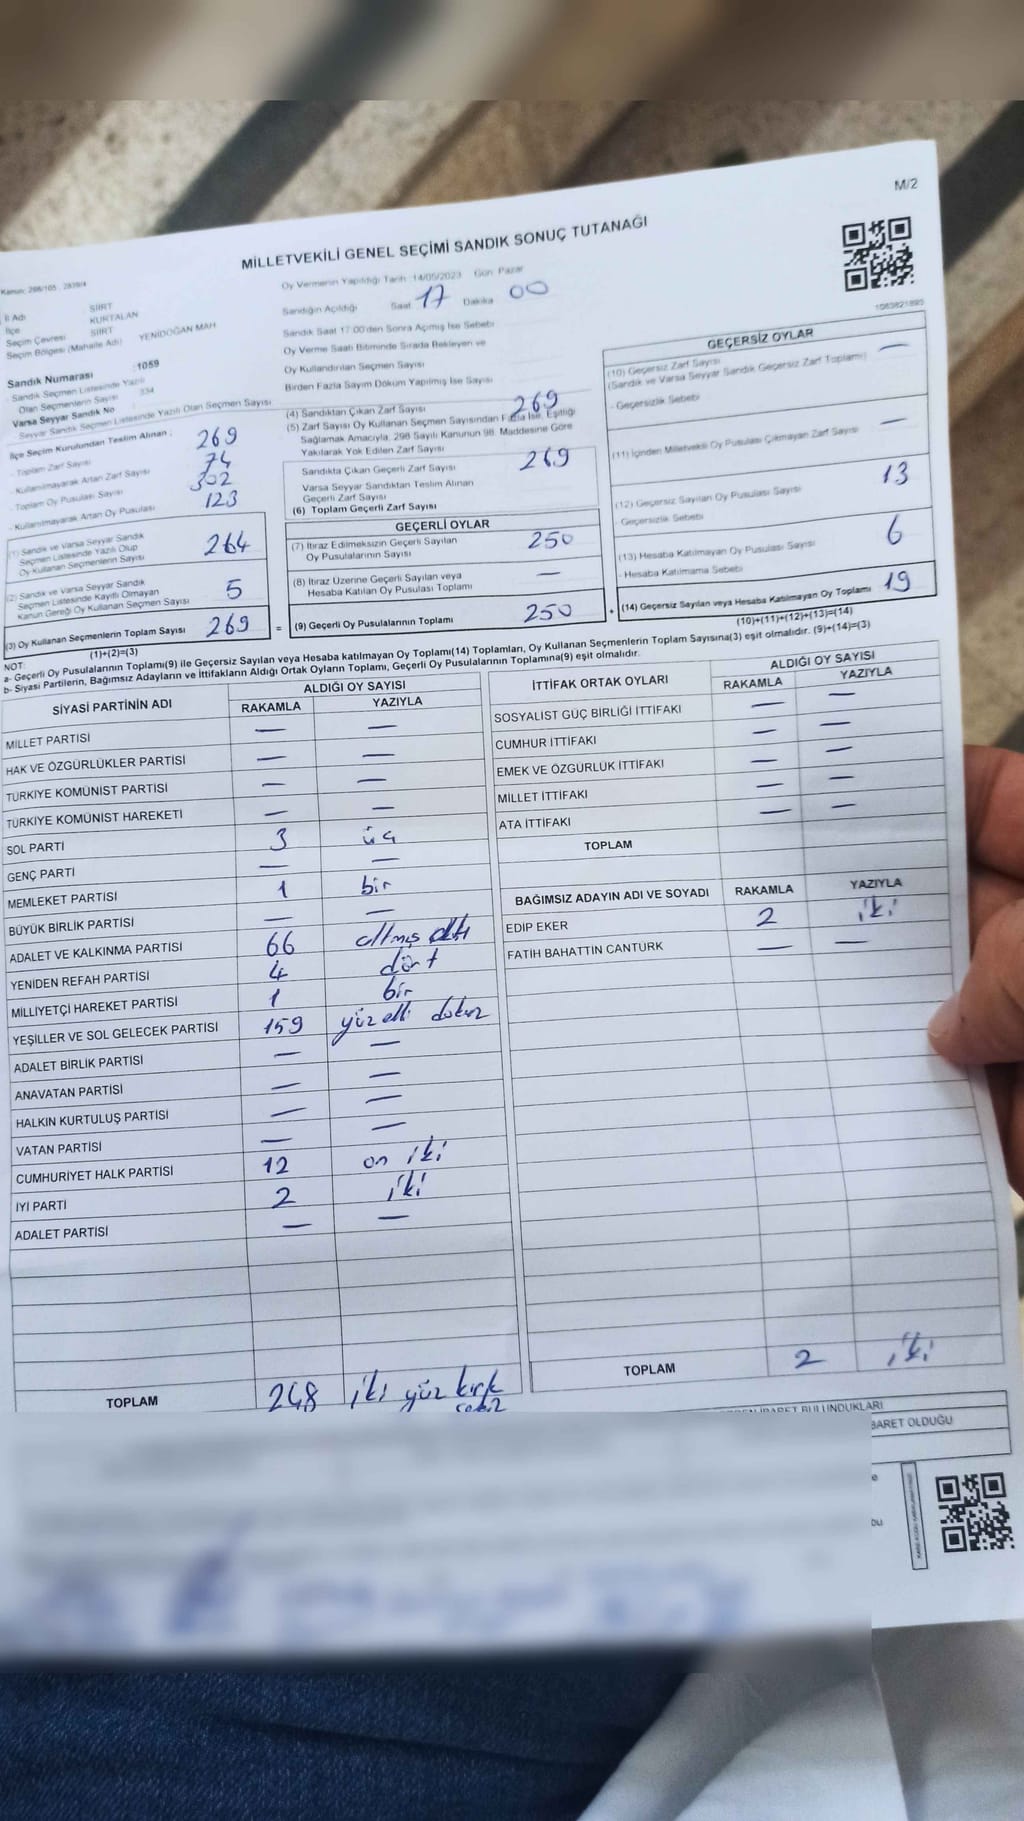 M/2
MİLLETVEKİLİ GENEL SEÇİMİ SANDIK SONUÇ TUTANAĞI
Kanun: 298/105, 2839/4
İl Adı SİİRT
İlçe KURTALAN
Seçim Çevresi SİİRT
Seçim Bölgesi (Mahalle Adı) YENİDOĞAN MAH
Sandık Numarası :1059
Sandık Seçmen Listesinde Yazılı
Olan Seçmenlerin Sayısı 334
Varsa Seyyar Sandık No
Seyyar Sandık Seçmen Listesinde Yazılı Olan Seçmen Sayısı
İlçe Seçim Kurulundan Teslim Alınan ;
- Toplam Zarf Sayısı 269
- Kullanılmayarak Artan Zarf Sayısı 74
- Toplam Oy Pusulası Sayısı 302
- Kullanılmayarak Artan Oy Pusulası 123
(1) Sandık ve Varsa Seyyar Sandık
Seçmen Listesinde Yazılı Olup
Oy Kullanan Seçmenlerin Sayısı 264
(2) Sandık ve Varsa Seyyar Sandık
Seçmen Listesinde Kayıtlı Olmayan
Kanun Gereği Oy Kullanan Seçmen Sayısı 5
(3) Oy Kullanan Seçmenlerin Toplam Sayısı 269 =
(1)+(2)=(3)
Oy Vermenin Yapıldığı Tarih :14/05/2023 Gün: Pazar
Sandığın Açıldığı Saat 17 Dakika 00
Sandık Saat 17:00'den Sonra Açımış İse Sebebi
Oy Verme Saati Bitiminde Sırada Bekleyen ve
Oy Kullandırılan Seçmen Sayısı
Birden Fazla Sayım Döküm Yapılmış İse Sayısı
(4) Sandıktan Çıkan Zarf Sayısı 269
(5) Zarf Sayısı Oy Kullanan Seçmen Sayısından Fazla İse, Eşitliği
Sağlamak Amacıyla, 298 Sayılı Kanunun 98. Maddesine Göre
Yakılarak Yok Edilen Zarf Sayısı
Sandıkta Çıkan Geçerli Zarf Sayısı 269
Varsa Seyyar Sandıktan Teslim Alınan
Geçerli Zarf Sayısı
(6) Toplam Geçerli Zarf Sayısı
GEÇERLİ OYLAR
(7) İtiraz Edilmeksizin Geçerli Sayılan
Oy Pusulalarının Sayısı 250
(8) İtiraz Üzerine Geçerli Sayılan veya
Hesaba Katılan Oy Pusulası Toplamı —
(9) Geçerli Oy Pusulalarının Toplamı 250 +
1083821895
GEÇERSİZ OYLAR
(10) Geçersiz Zarf Sayısı —
(Sandık ve Varsa Seyyar Sandık Geçersiz Zarf Toplamı)
- Geçersizlik Sebebi
(11) İçinden Milletvekili Oy Pusulası Çıkmayan Zarf Sayısı —
(12) Geçersiz Sayılan Oy Pusulası Sayısı 13
- Geçersizlik Sebebi
(13) Hesaba Katılmayan Oy Pusulası Sayısı 6
- Hesaba Katılmama Sebebi
(14) Geçersiz Sayılan veya Hesaba Katılmayan Oy Toplamı 19
(10)+(11)+(12)+(13)=(14)
NOT:
a- Geçerli Oy Pusulalarının Toplamı(9) ile Geçersiz Sayılan veya Hesaba katılmayan Oy Toplamı(14) Toplamları, Oy Kullanan Seçmenlerin Toplam Sayısına(3) eşit olmalıdır. (9)+(14)=(3)
b- Siyasi Partilerin, Bağımsız Adayların ve İttifakların Aldığı Ortak Oyların Toplamı, Geçerli Oy Pusulalarının Toplamına(9) eşit olmalıdır.
SİYASİ PARTİNİN ADI ALDIĞI OY SAYISI
RAKAMLA YAZIYLA
MİLLET PARTİSİ — —
HAK VE ÖZGÜRLÜKLER PARTİSİ — —
TÜRKİYE KOMÜNİST PARTİSİ — —
TÜRKİYE KOMÜNİST HAREKETİ — —
SOL PARTİ 3 üç
GENÇ PARTİ — —
MEMLEKET PARTİSİ 1 bir
BÜYÜK BİRLİK PARTİSİ — —
ADALET VE KALKINMA PARTİSİ 66 altmış altı
YENİDEN REFAH PARTİSİ 4 dört
MİLLİYETÇİ HAREKET PARTİSİ 1 bir
YEŞİLLER VE SOL GELECEK PARTİSİ 159 yüz elli dokuz
ADALET BİRLİK PARTİSİ — —
ANAVATAN PARTİSİ — —
HALKIN KURTULUŞ PARTİSİ — —
VATAN PARTİSİ — —
CUMHURİYET HALK PARTİSİ 12 on iki
İYİ PARTİ 2 iki
ADALET PARTİSİ — —
TOPLAM 248 iki yüz kırk
sekiz
İTTİFAK ORTAK OYLARI ALDIĞI OY SAYISI
RAKAMLA YAZIYLA
SOSYALİST GÜÇ BİRLİĞİ İTTİFAKI — —
CUMHUR İTTİFAKI — —
EMEK VE ÖZGÜRLÜK İTTİFAKI — —
MİLLET İTTİFAKI — —
ATA İTTİFAKI — —
TOPLAM
BAĞIMSIZ ADAYIN ADI VE SOYADI RAKAMLA YAZIYLA
EDİP EKER 2 iki
FATİH BAHATTİN CANTÜRK — —
TOPLAM 2 iki
BULUNDUKLARI
OLDUĞU